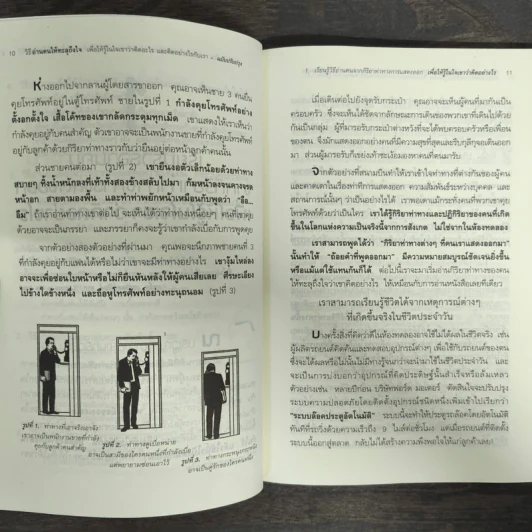 10 วิธีอ่านคนให้ทะลุถึงใจ เพื่อให้รู้ในใจเขาว่าคิดอะไร และคิดอย่างไรกับเรา • ฉบับปรับปรุง
ห่างออกไปจากลานผู้โดยสารขาออก คุณอาจเห็นชาย 3 คนยืน
คุยโทรศัพท์อยู่ในตู้โทรศัพท์ ชายในรูปที่ 1 กำลังคุยโทรศัพท์อย่าง
ตั้งอกตั้งใจ เสื้อโค้ทของเขากลัดกระดุมทุกเม็ด เขาแสดงให้เราเห็นว่า
กำลังคุยอยู่กับคนสำคัญ ตัวเขาอาจจะเป็นพนักงานขายที่กำลังคุยโทรศัพท์
อยู่กับลูกค้าด้วยกิริยาท่าทางราวกับว่ายืนอยู่ต่อหน้าลูกค้าคนนั้น
ส่วนชายคนต่อมา (รูปที่ 2) เขายืนงอตัวเล็กน้อยด้วยท่าทาง
สบายๆ ทิ้งน้ำหนักลงที่เท้าทั้งสองข้างสลับไปมา ก้มหน้าลงจนคางจรด
หน้าอก สายตามองพื้น และทำท่าพยักหน้าเหมือนกับพูดว่า "อือ...
อืม" ถ้าเราอ่านท่าทางเขาต่อไป จะเห็นได้ว่าท่าทางเหนื่อยๆ คนที่เขาคุย
ด้วยอาจจะเป็นภรรยา และภรรยาก็คงจะรู้ว่าเขากำลังเบื่อกับการพูดคุย
จากตัวอย่างสองตัวอย่างที่ผ่านมา คุณพอจะนึกภาพชายคนที่ 3
ที่กำลังคุยอยู่กับแฟนได้หรือไม่ว่าจะมีท่าทางอย่างไร เขางุ้มไหล่ลง
อาจจะเพื่อซ่อนใบหน้าหรือไม่ก็ยืนหันหลังให้ผู้คนเสียเลย ศีรษะเอียง
ไปข้างใดข้างหนึ่ง และถือหูโทรศัพท์อย่างทะนุถนอม (รูปที่ 3)
รูปที่ 1. ท่าทางที่เอาจริงเอาจัง
เขาอาจเป็นพนักงานขายที่กำลัง
คุยกับลูกค้าคนสำคัญ
รูปที่ 2. ท่าทางดูเบื่อหน่าย
อาจเป็นสามีของใครคนหนึ่งที่กำลังเบื่อ
แต่พยายามซ่อนเอาไว้
รูปที่ 3. ท่าทางกระหนุงกระหนิง
อาจเป็นคู่รักของใครคนหนึ่ง
1. เรียนรู้วิธีอ่านคนจากกิริยาท่าทางการแสดงออก เพื่อให้รู้ในใจเขาว่าคิดอย่างไร 11
เมื่อเดินต่อไปยังจุดรับกระเป๋า คุณอาจจะเห็นผู้คนที่มากันเป็น
ครอบครัว ซึ่งจะเห็นได้ชัดจากลักษณะการเดินของพวกเขาที่เดินไปด้วย
กันเป็นกลุ่ม ผู้ที่มารอรับกระเป๋าต่างหวังที่จะได้พบครอบครัวหรือเพื่อน
ของตน จึงมักแสดงออกอย่างคนที่มีความสุขที่สุดและรีบๆลีกๆจะเดินออก
มา ส่วนผู้มารอรับก็เขย่งเท้าชะเง้อมองหาคนที่ตนมารับ
จากตัวอย่างที่สนามบินทำให้เราเข้าใจท่าทางที่ต่างกันของผู้คน
และคาดเดาในเรื่องท่าทีการแสดงออก ความสัมพันธ์ระหว่างบุคคล และ
สถานการณ์นั้นๆ ว่าเป็นอย่างไรได้ เราพอเดาแม้กระทั่งคนที่พวกเขาคุย
โทรศัพท์ด้วยว่าเป็นใคร เราได้รู้จักท่าทางและปฏิกิริยาของคนที่เกิด
ขึ้นในโลกแห่งความเป็นจริงนี้จากการสังเกต ไม่ใช่จากในห้องทดลอง
เราสามารถพูดได้ว่า "กิริยาท่าทางต่างๆ ที่คนเราแสดงออกมา"
นั้นทำให้ "ถ้อยคำที่พูดออกมา" มีความหมายสมบูรณ์ชัดเจนยิ่งขึ้น
หรือแม้แต่ใช้แทนกันก็ได้ ต่อไปนี้เราจะมาเริ่มอ่านกิริยาท่าทางของคน
ให้ทะลุถึงใจว่าเขาคิดอย่างไร ให้เหมือนกับการอ่านหนังสือเล่มทีเดียว
เราสามารถเรียนรู้ชีวิตได้จากเหตุการณ์ต่างๆ
ที่เกิดขึ้นจริงในชีวิตประจำวัน
บางครั้งสิ่งที่คิดว่าดีในห้องทดลองอาจใช้ไม่ได้ผลในชีวิตจริง เช่น
ผู้ผลิตรถยนต์ติดตั้นและทดสอบอุปกรณ์ต่างๆ เพื่อใช้กับรถยนต์ของตน
ซึ่งจะได้ผลหรือไม่นั้นไม่มีทางรู้จนกว่าจะนำมาใช้ในชีวิตประจำวัน และ
จะเป็นการบ่งบอกว่าอุปกรณ์ที่คิดประดิษฐ์นั้นสำเร็จหรือล้มเหลว
ตัวอย่างเช่น หลายปีก่อน บริษัทฟอร์ด มอเตอร์ ตัดสินใจจะปรับปรุง
ระบบความปลอดภัยโดยติดตั้งอุปกรณ์ชนิดหนึ่งเพิ่มเข้าไปเรียกกว่า
"ระบบล็อคประตูอัตโนมัติ" ระบบนี้จะทำให้ประตูรถล็อคโดยอัตโนมัติ
ทันทีที่รถวิ่งด้วยความเร็วถึง 9 ไมล์ต่อชั่วโมง แต่เมื่อรถยนต์ที่ติดตั้ง
ระบบนี้ออกสู่ตลาด กลับไม่ได้สร้างความพึงพอใจให้แก่ลูกค้าเลย!